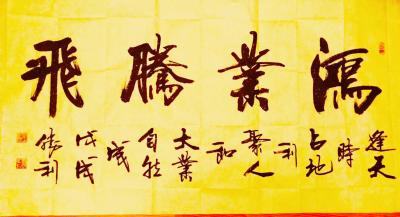 鴻業騰飛
逢天
時
占地
利
聚人
和
大業
自然
成
戊戌
利